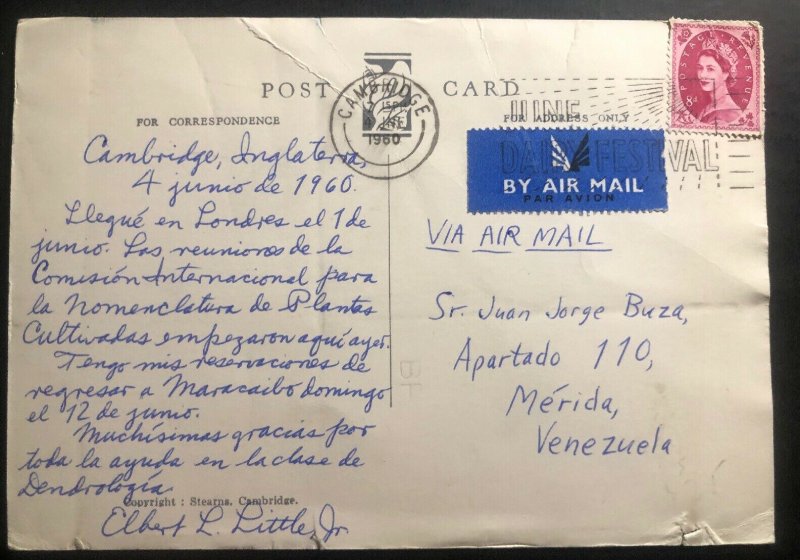 POST CARD
FOR CORRESPONDENCE
FOR ADDRESS ONLY
CAMBRIDGE
1960
JUNE
DAIRY FESTIVAL
POSTAGE REVENUE
8d
BY AIR MAIL
PAR AVION
Cambridge, Inglaterra,
4 junio de 1960.
Llegué en Londres el 1 de
junio. Las reuniones de la
Comisión Internacional para
la Nomenclatura de Plantas
Cultivadas empezaron aquí ayer.
Tengo mis reservaciones de
regresar a Maracaibo domingo
el 12 de junio.
Muchísimas gracias por
toda la ayuda en la clase de
Dendrología.
Copyright : Stearns, Cambridge.
Elbert L. Little, Jr.
VIA AIR MAIL
Sr. Juan Jorge Buza,
Apartado 110,
Mérida,
Venezuela